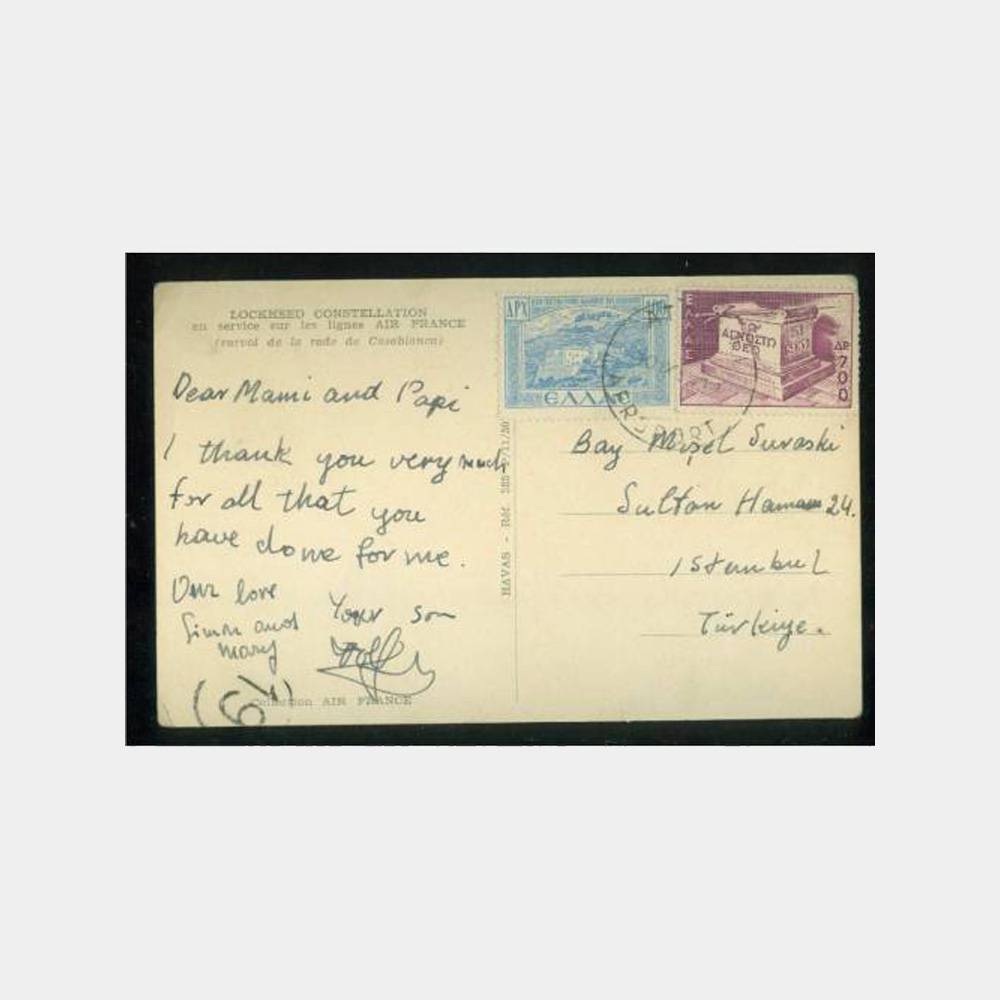 LOCKHEED CONSTELLATION
en service sur les lignes AIR FRANCE
(survol de la rade de Casablanca)
Dear Mami and Papi
I thank you very much
for all that you
have done for me.
Our love
Simon and
mary
Your son
Collection AIR FRANCE
HAVAS - Réf.
ΔΡΧ
ΕΛΛΑΣ
ΕΛΛΑΣ
ΑΓΝΩΣΤΩ
ΘΕΩ
ΔΡ 700
AEROPORT
Bay Mişel Suraski
Sultan Hamam 24.
Istanbul
Türkiye.
19